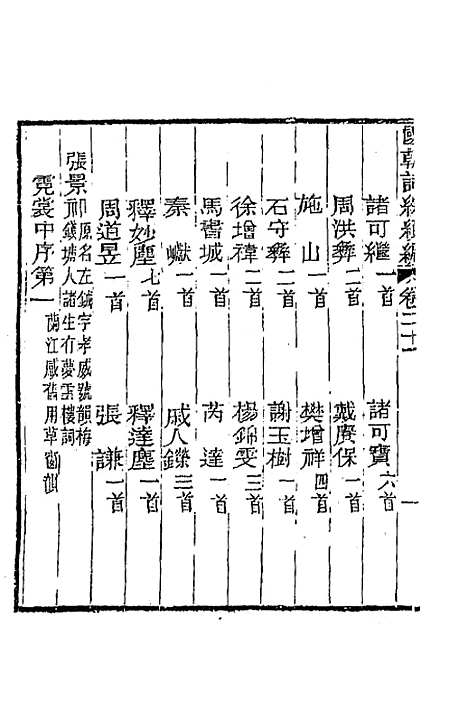 國朝詞綜續編 卷二十 一
諸可繼一首 諸可寶六首
周洪彝二首 戴賡保一首
施山一首 樊增祥四首
石守彝二首 謝玉樹一首
徐增禕二首 楊錦雯三首
馬書城一首 芮達一首
秦巘一首 戚人鏁三首
釋妙塵七首 釋達塵一首
周道昱一首 張謙一首
張景祁原名左鉞字孝威號韻梅錢塘人諸生有蘉雲樓詞
霓裳中序第一蘭江感舊用草窗韻